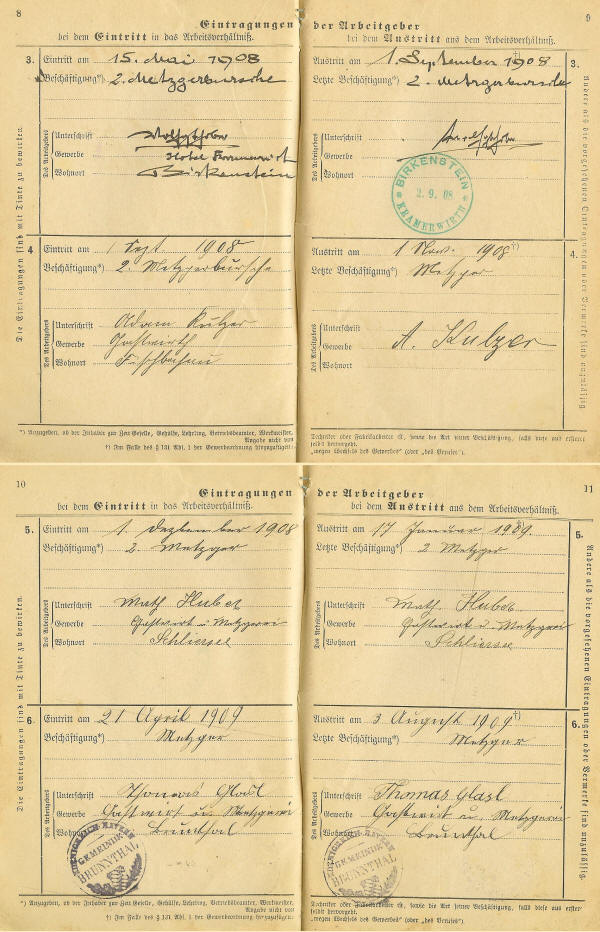 8
Eintragungen
bei dem Eintritt in das Arbeitsverhältniß.
3.
Eintritt am 15. Mai 1908
Beschäftigung*) 2. Metzgerbursche
Des Arbeitgebers
Unterschrift
Gewerbe Hotel
Wohnort Birkenstein
Die Eintragungen sind mit Tinte zu bewirken.
4
Eintritt am 1 Sept. 1908
Beschäftigung*) 2. Metzgerbursche
Des Arbeitgebers
Unterschrift Adam Kulzer
Gewerbe Gastwirth
Wohnort Fischbachau
*) Anzugeben, ob der Inhaber zur Zeit Geselle, Gehülfe, Lehrling, Betriebsbeamter, Werkmeister,
Angabe nicht von
†) Im Falle des § 131 Abs. 1 der Gewerbeordnung hinzuzufügen:
9
der Arbeitgeber
bei dem Austritt aus dem Arbeitsverhältniß.
Austritt am 1. September †) 1908
3.
Letzte Beschäftigung*) 2. Metzgerbursche
Des Arbeitgebers
Unterschrift
Gewerbe
Wohnort
BIRKENSTEIN
2. 9. 08
KRAMERWIRTH
Andere als die vorgesehenen Eintragungen oder Vermerke sind unzulässig
Austritt am 1 Nov. 1908 †)
4.
Letzte Beschäftigung*) Metzger
Des Arbeitgebers
Unterschrift A. Kulzer
Gewerbe
Wohnort
Techniker oder Fabrikarbeiter ist, sowie die Art seiner Beschäftigung, falls diese aus ersterer
selbst hervorgeht.
„wegen Wechsels des Gewerbes" (oder „des Berufes").
10
Eintragungen
bei dem Eintritt in das Arbeitsverhältniß.
5.
Eintritt am 1. Dezbember 1908
Beschäftigung*) 2. Metzger
Des Arbeitgebers
Unterschrift Math Huber
Gewerbe Gastwirt u. Metzgerei
Wohnort Schliersee
Die Eintragungen sind mit Tinte zu bewirken.
6.
Eintritt am 21 April 1909
Beschäftigung*) Metzger
Des Arbeitgebers
Unterschrift Thomas Glasl
Gewerbe Gastwirt u. Metzgerei
Wohnort Brunthal
KÖNIGREICH BAYERN
GEMEINDE
BRUNNTHAL
*) Anzugeben, ob der Inhaber zur Zeit Geselle, Gehülfe, Lehrling, Betriebsbeamter, Werkmeister,
Angabe nicht von
†) Im Falle des § 131 Abs. 1 der Gewerbeordnung hinzuzufügen:
11
der Arbeitgeber
bei dem Austritt aus dem Arbeitsverhältniß.
Austritt am 17 Januar 1909.
5.
Letzte Beschäftigung*) 2 Metzger
Des Arbeitgebers
Unterschrift Math. Huber
Gewerbe Gastwirt u. Metzgerei
Wohnort Schliersee
Andere als die vorgesehenen Eintragungen oder Vermerke sind unzulässig.
Austritt am 3 August 1909 †)
6.
Letzte Beschäftigung*) Metzger
Des Arbeitgebers
Unterschrift Thomas Glasl
Gewerbe Gastwirt u. Metzgerei
Wohnort Brunthal
KÖNIGREICH BAYERN
GEMEINDE
BRUNNTHAL
Techniker oder Fabrikarbeiter ist, sowie die Art seiner Beschäftigung, falls diese aus ersterer
selbst hervorgeht.
„wegen Wechsels des Gewerbes" (oder „des Berufes").